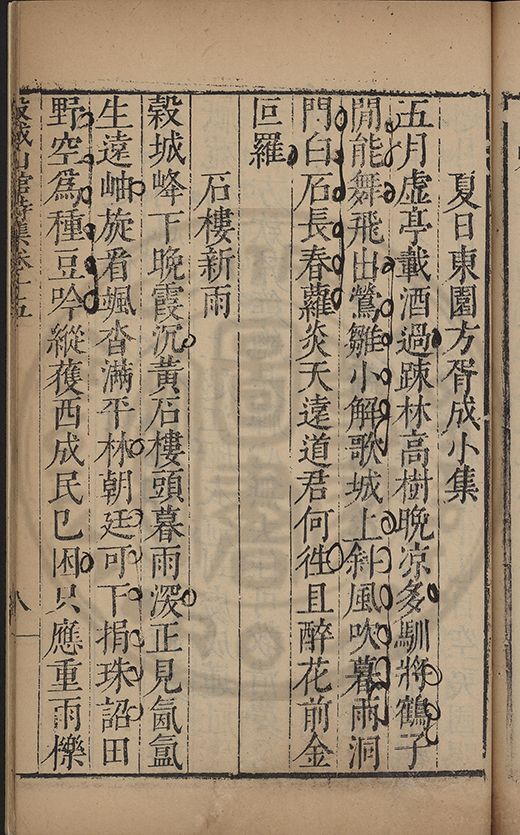 夏日東園方胥成小集
五月虛亭載酒過踈林高樹晩凉多馴將鶴子
閒能舞飛出鶯雛小解歌城上斜風吹暮雨洞
門白石長春蘿炎天遠道君何徃且醉花前金
叵羅
石樓新雨
穀城峰下晚霞沉黃石樓頭暮雨深正見氤氳
生遠岫旋看颯沓滿平林朝廷可下捐珠詔田
野空爲種豆吟縱獲西成民已困只應重雨儏
穀城山館詩集卷十五
八